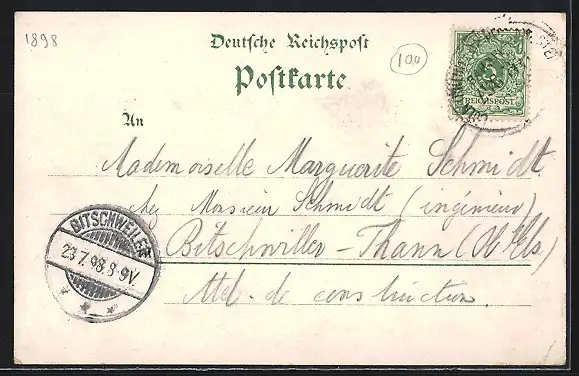 1898
Deutsche Reichspost
Postkarte
100
5
REICHSPOST
An
Mademoiselle Marguerite Schmidt
chez Monsieur Schmidt (ingénieur)
Bitschwiller-Thann (Ob Els)
Atel. de construction.
BITSCHWEILER
23.7.98.8-9V.